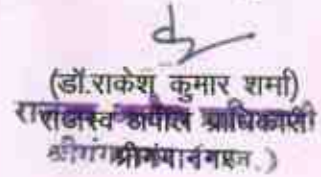 (डॉ.राकेश कुमार शर्मा)
राजस्व अपील प्राधिकारी
श्रीगंगानगर